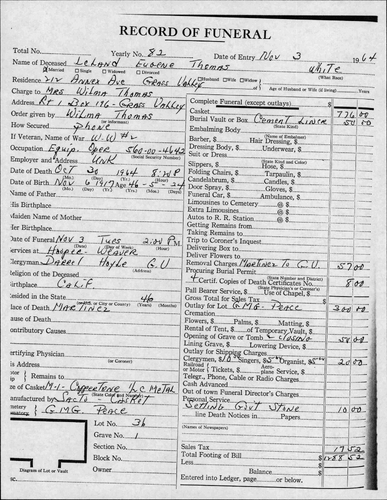 RECORD OF FUNERAL
Total No. Yearly No. 82 Date of Entry Nov 3 1964
Name of Deceased Leland Eugene Thomas white
Married Single Widowed Divorced (What Race)
Residence 212 Annex Ave Grass Valley Husband Wife Widow of
Charge to Mrs Wilma Thomas Age of Husband or Wife (if living)
Rt 1 Box 196 - Grass Valley
Order given by Wilma Thomas
How Secured phone
If Veteran, Name of War W.W #2
Occupation Equip. Oper 560-00-4642
(Social Security Number)
Employer and Address UNK
Date of Death Oct 30 1964 8:20 P
Date of Birth Nov 6 1917 Age 46-5-24
Name of Father
His Birthplace
Maiden Name of Mother
Her Birthplace
Date of Funeral Nov 3 Tues 2:00 P M.
(Date) (Day of Week)
Services at Hooper Weaver
Clergyman Darrel Hoyle G.V
Religion of the Deceased
Birthplace Calif.
Resided in the State 46
(or City or County) (Years) (Months)
Place of Death Martinez
Cause of Death
Contributory Causes
Certifying Physician
(or Coroner)
His Address
Remains to
Size of Casket
Manufactured by Sac'to Casket
Cemetery G.M.G. Peace
Lot No. 36
Grave No. 1
Section No.
Block No.
Owner
Diagram of Lot or Vault
Complete Funeral (except outlays) 776 00
Burial Vault or Box Cement Liner 50 00
(State Kind)
Embalming Body
Barber, $ Hair Dressing, $
Dressing Body, $ Underwear, $
Suit or Dress
(State Kind and Color)
Slippers, $ Hose, $
Folding Chairs, $ Tarpaulin, $
Candelabrum, $ Candles, $
Door Spray, $ Gloves, $
Funeral Car, $ Ambulance, $
Limousines to Cemetery @ $
Extra Limousines @ $
Autos to R. R. Station @ $
Getting Remains
Taking Remains to
Trip to Coroner's Inquest
Delivering Box to
Deliver Flowers to
Removal Charges Martinez to G.V. 57 00
Procuring Burial Permit
(State Number and District)
4 Certif. Copies of Death Certificates No. 8 00
(State Physician's or Coroner's)
Pall Bearer Service, $ Use of Chapel, $
Gross Total for Sales Tax
Outlay for Lot G.M.G - Peace 300 00
Cremation
Flowers, $ Palms, $ Matting, $
Rental of Tent, $ of Temporary Vault, $
Opening of Grave or Tomb & Closing 58 00
Lining Grave, $ Lowering Device, $
Outlay for Shipping Charges
Clergyman, $10 Singers, $5 Organist, $5 20 00
Railroad or Motor Tickets, $ Aeroplane Service, $
Telegr., Phone, Cable or Radio Charges
Cash Advanced
Out of town Funeral Director's Charges
Personal Service
Setting Govt Stone 10 00
line Death Notices in Papers
(Names of Newspapers)
Sales Tax 17 52
Total Footing of Bill
Less
Balance
Entered into Ledger, page or below.